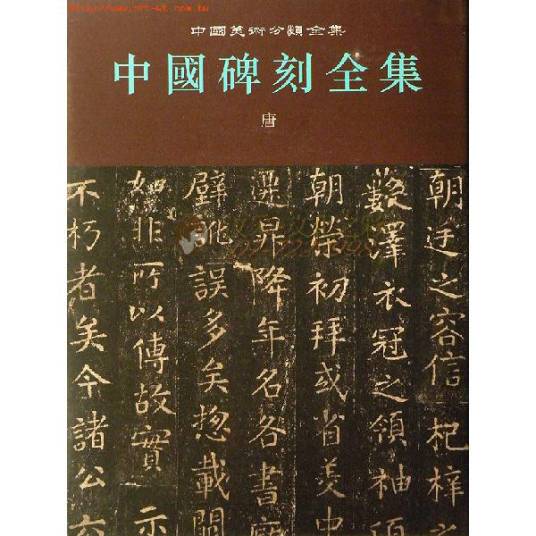 中國美術分類全集
中國碑刻全集
唐
朝廷之容信杞梓之
藪澤衣冠之領袖
朝榮初拜或省美中
遷昇降年名各書
壁訛誤多矣惚載
如非所以傳故實示
不朽者矣今諸公